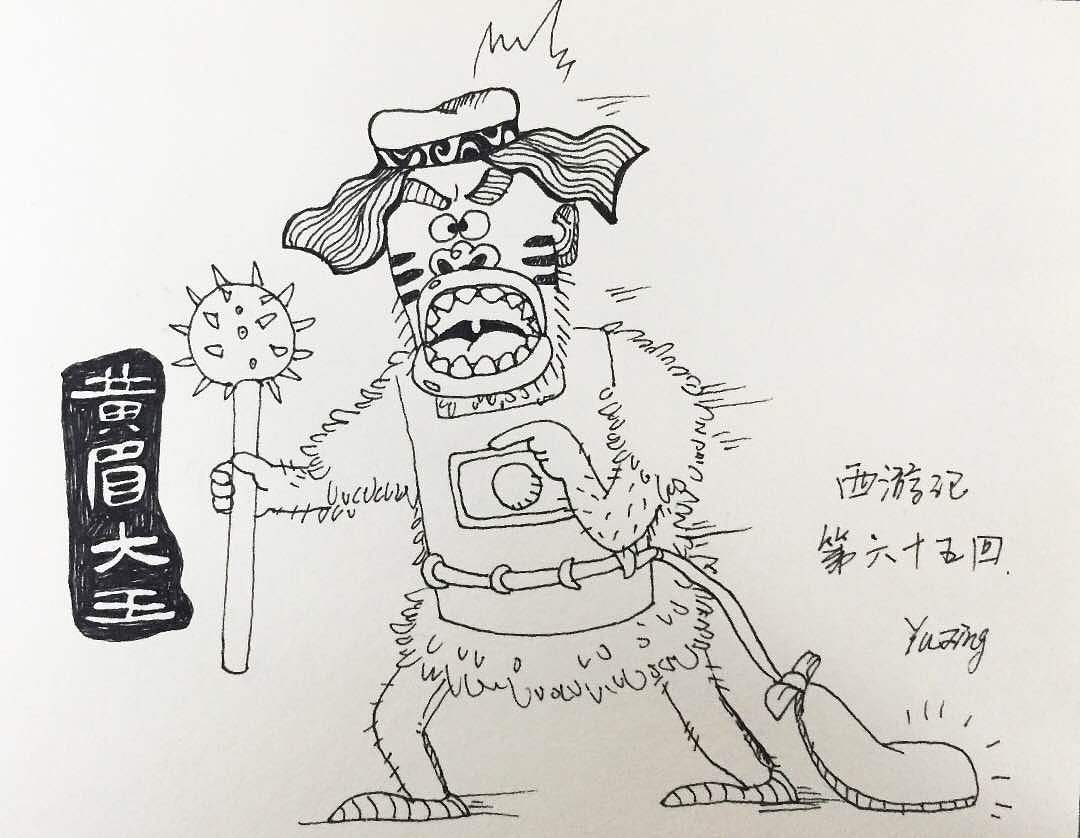 黄眉大王
西游记
第六十五回.
Yuzing